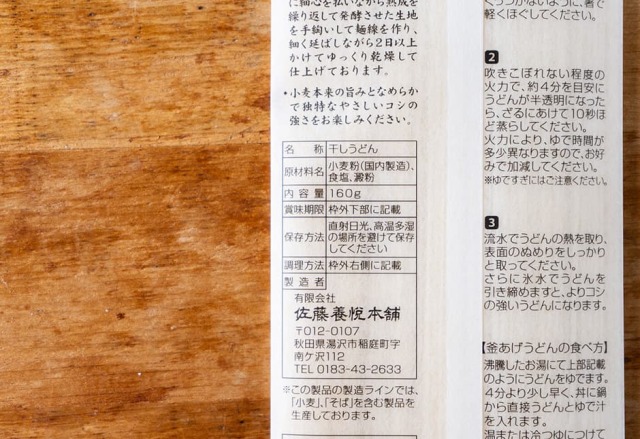 に細心を払いながら熟成を
繰り返して発酵させた生地
を手綯いして麺線を作り、
細く延ばしながら2日以上
かけてゆっくり乾燥して
仕上げております。
・小麦本来の旨みとなめらか
で独特なやさしいコシの
強さをお楽しみください。
名 称 干しうどん
原材料名 小麦粉(国内製造)、
食塩、澱粉
内 容 量 160g
賞味期限 枠外下部に記載
保存方法 直射日光、高温多湿
の場所を避けて保存
してください
調理方法 枠外右側に記載
製 造 者
有限会社
佐藤養悦本舗
〒012-0107
秋田県湯沢市稲庭町字
南ケ沢112
TEL 0183-43-2633
※この製品の製造ラインでは、
「小麦」、「そば」を含む製品を
生産しております。
くっつかないように、箸で
軽くほぐしてください。
2
吹きこぼれない程度の
火力で、約4分を目安に
うどんが半透明になった
ら、ざるにあけて10秒ほ
ど蒸らしてください。
火力により、ゆで時間が
多少異なりますので、お好
みで加減してください。
※ゆですぎにはご注意ください。
3
流水でうどんの熱を取り、
表面のぬめりをしっかり
と取ってください。
さらに氷水でうどんを
引き締めますと、よりコシ
の強いうどんになります。
【釜あげうどんの食べ方】
沸騰したお湯にて上部記載
のようにうどんをゆでます。
4分より少し早く、丼に鍋
から直接うどんとゆで汁
を入れます。
温または冷つゆにつけて